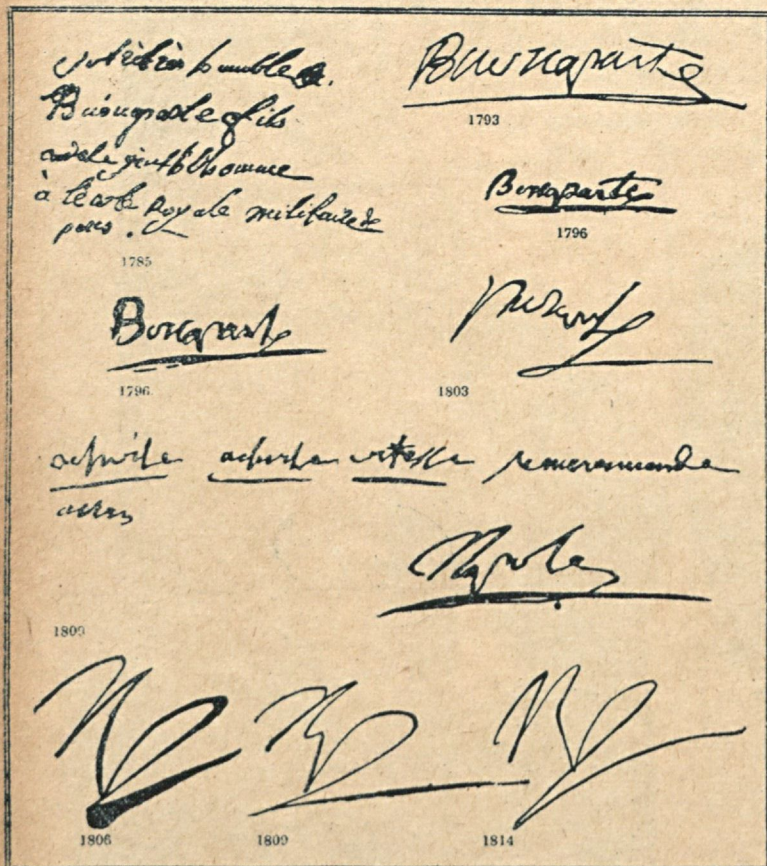 humble
Buonaparte fils
cadet gentilhomme
à l'ecole royale militaire de
paris .
1785
Buonaparte
1793
Bonaparte
1796
Bonaparte
1796
1803
activite activite vitesse
Napole
1809
1806
1809
1814